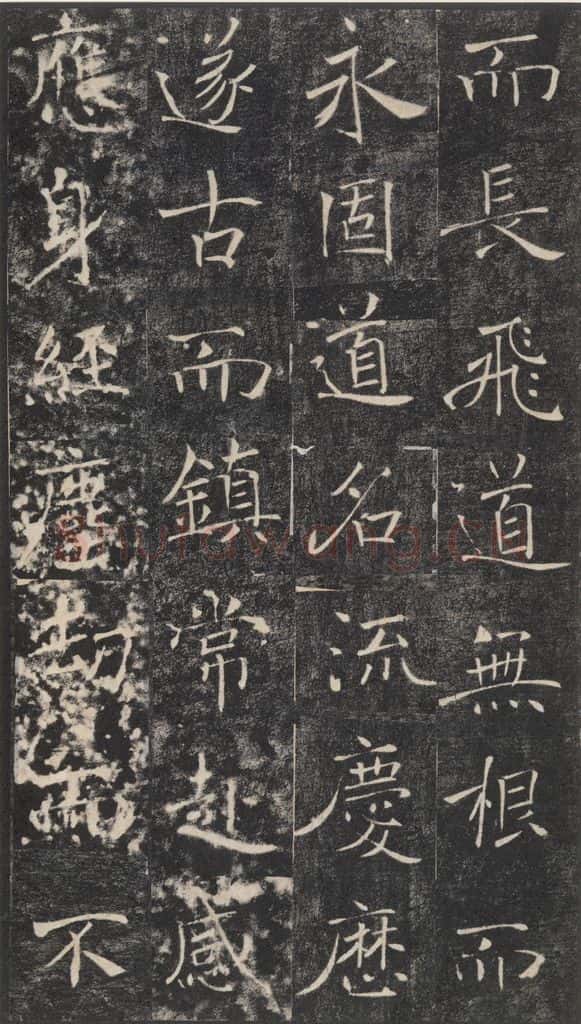 而長飛道無根而
永固道名流慶歷
遂古而鎮常赴感
應身經塵劫而不
shufawang.cn